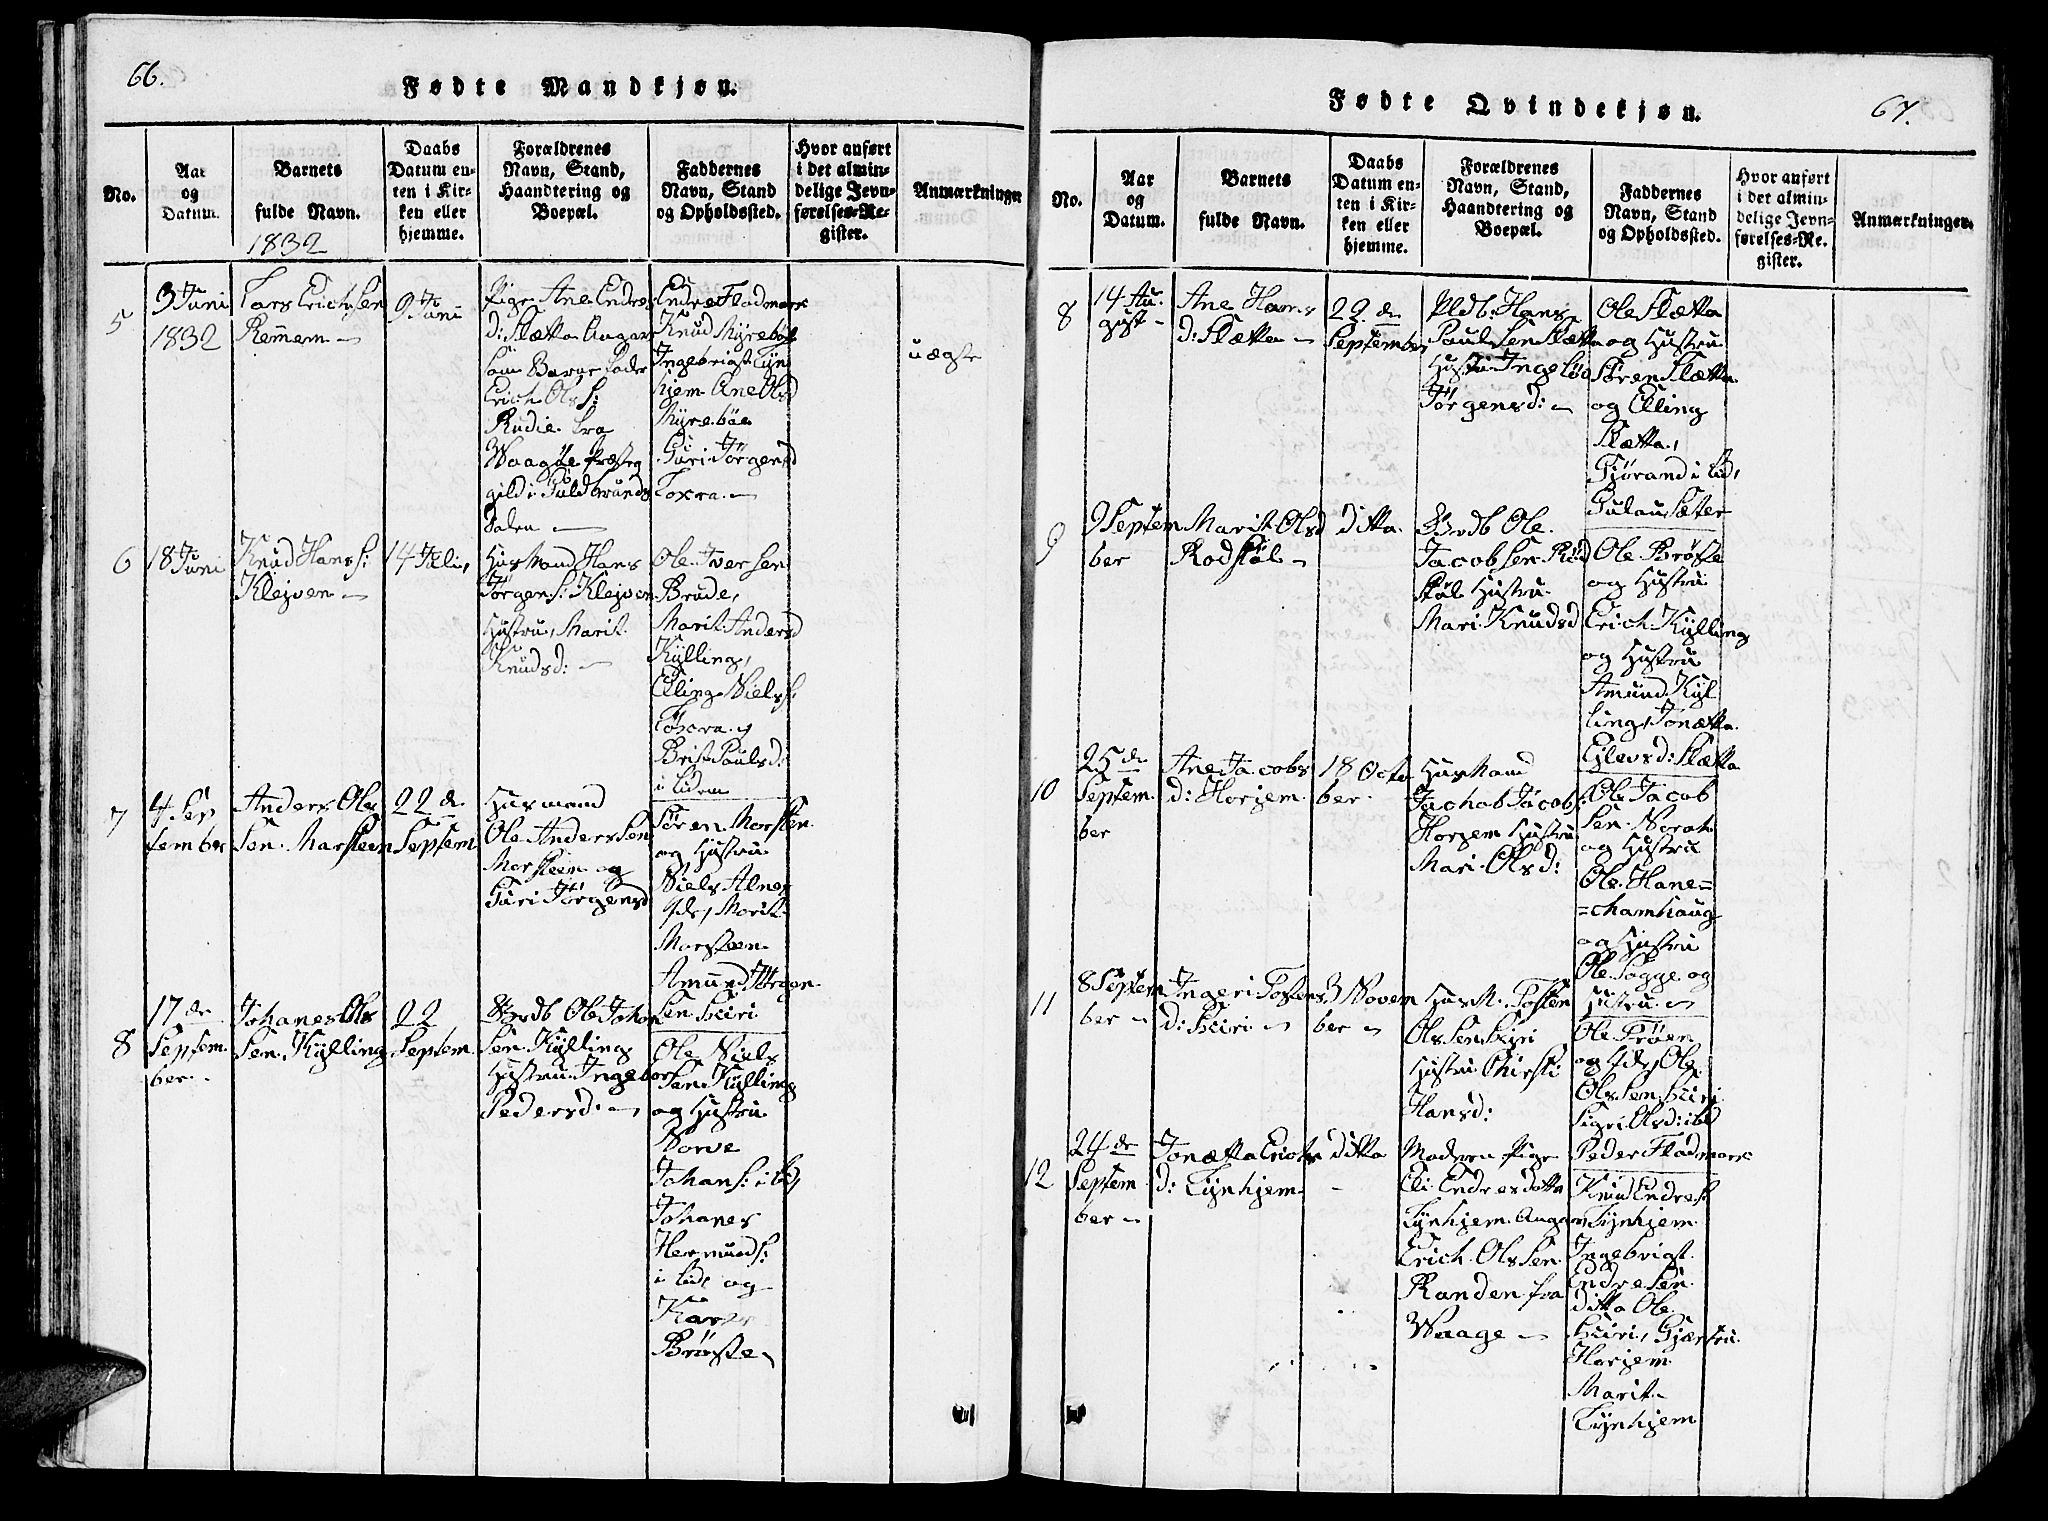 66.
Fødte Mandkjøn.
No.
Aar
og
Datum.
Barnets
fulde Navn.
1832
Daabs
Datum en-
ten i Kir-
ken eller
hjemme.
Forældrenes
Navn, Stand,
Haandtering og
Boepæl.
Faddernes
Navn, Stand
og Opholdssted.
Hvor anført
i det almin-
delige Jevn-
førelses-Re-
gister.
Anmærkninger
5
3 Juni
1832
Lars Erichsen
Remem
9 Juni
Pige Ane Endres
d: Slætta Angav
som Barne Fader
Erich Ols S:
Rudie fra
Waage Præste
gild i Guldbrands
dalen
Endre Fladmark
Knud Myreböe
Ingebrigt Tyn
hjem Ane Olsd
Myreböe
Guri Jörgensd
Foxra
uægte
6
18 Juni
Knud Hans S:
Klejven
14 Juli
Husmand Hans
Jörgen S: Klejven
Hustru, Marit
Knudsd:
Ole Iversen
Brude,
Marit Andersd
Kylling,
Elling Niels S:
Foxra
Brit Paulsd:
i Lidem
7
4 Sep
tember
Anders Ols
Sen Marsteen
22 de
Septem
Husmand
Ole Anders Sen
Morsteen og
Guri Jörgensd
Sören Morsten
og Hustru
Niels Alnes
Marit
Morsteen
Amund Jörgen
Sen
8
17 de
Septem
ber
Johanes Ols
Sen Kylling
22
Septem
Ole Johan
Sen Kylling
Hustru Ingebor
Pedersd:
Ole Niels
Sen Kylling
og Hustru
Norve
Johans: ibd,
Johanes
Hermunds:
i Lid og
Kari
Bröste
Fødte Qvindekjøn.
67.
No.
Aar
og
Datum.
Barnets
fulde Navn.
Daabs
Datum en-
ten i Kir-
ken eller
hjemme.
Forældrenes
Navn, Stand,
Haandtering og
Boepæl.
Faddernes
Navn, Stand
og Opholdssted.
Hvor anført
i det almin-
delige Jevn-
førelses-Re-
gister.
Anmærkninger.
8
14 Au
gust
Ane Hans
d: Slætta
22 de
September
Hans
Paul Sen Slætta
Hustru Ingebör
Jörgensd:
Ole Slætta
og Hustru
Sören Slætta
og Elling
Slætta,
Gjörand i Lid,
9
9 Septem
ber
Marit Olsd
Rodstöl
ditta
Ole
Jacobsen Rød
Stöl Hustru
Mari Knudsd
Ole Bröste
og Hustru
Erich Kylling
og Hustru
Amund Kyl
ling, Jonætta
Ejlevsd: Slætta
10
25 de
Septem
ber
Ane Jacobs
d: Horjem
18 Octo
ber
Husmand
Jachob Jacob S:
Horjem Hustru
Mari Olsd:
Ole Jacob
Sen Norah
og Hustru
Ole Hane=
=chamhaug
og Hustru
Ole Sogge og
Hustru
11
8 Septem
ber
Ingeri Tostens
d:
3 Novem
ber
Husm. Tosten
Ols Sen
Hustru Chirsti
Hansd:
Ole Pröen
Ole
Ols Sen
Sigri Olsd: ibd
12
24 de
Septem
ber
Jonætta Erichs
d: Tynhjem
ditta
Moderen Pige
Eli Endresdotta
Tynhjem Angav
Erich Ols Sen
Randen fra
Waage
Peder Fladmark
Knud Endres:
Tynhjem
Ingebrigt
Endre Sen
ditta Ole
Gjertru
Horjem
Marit
Tynhjem